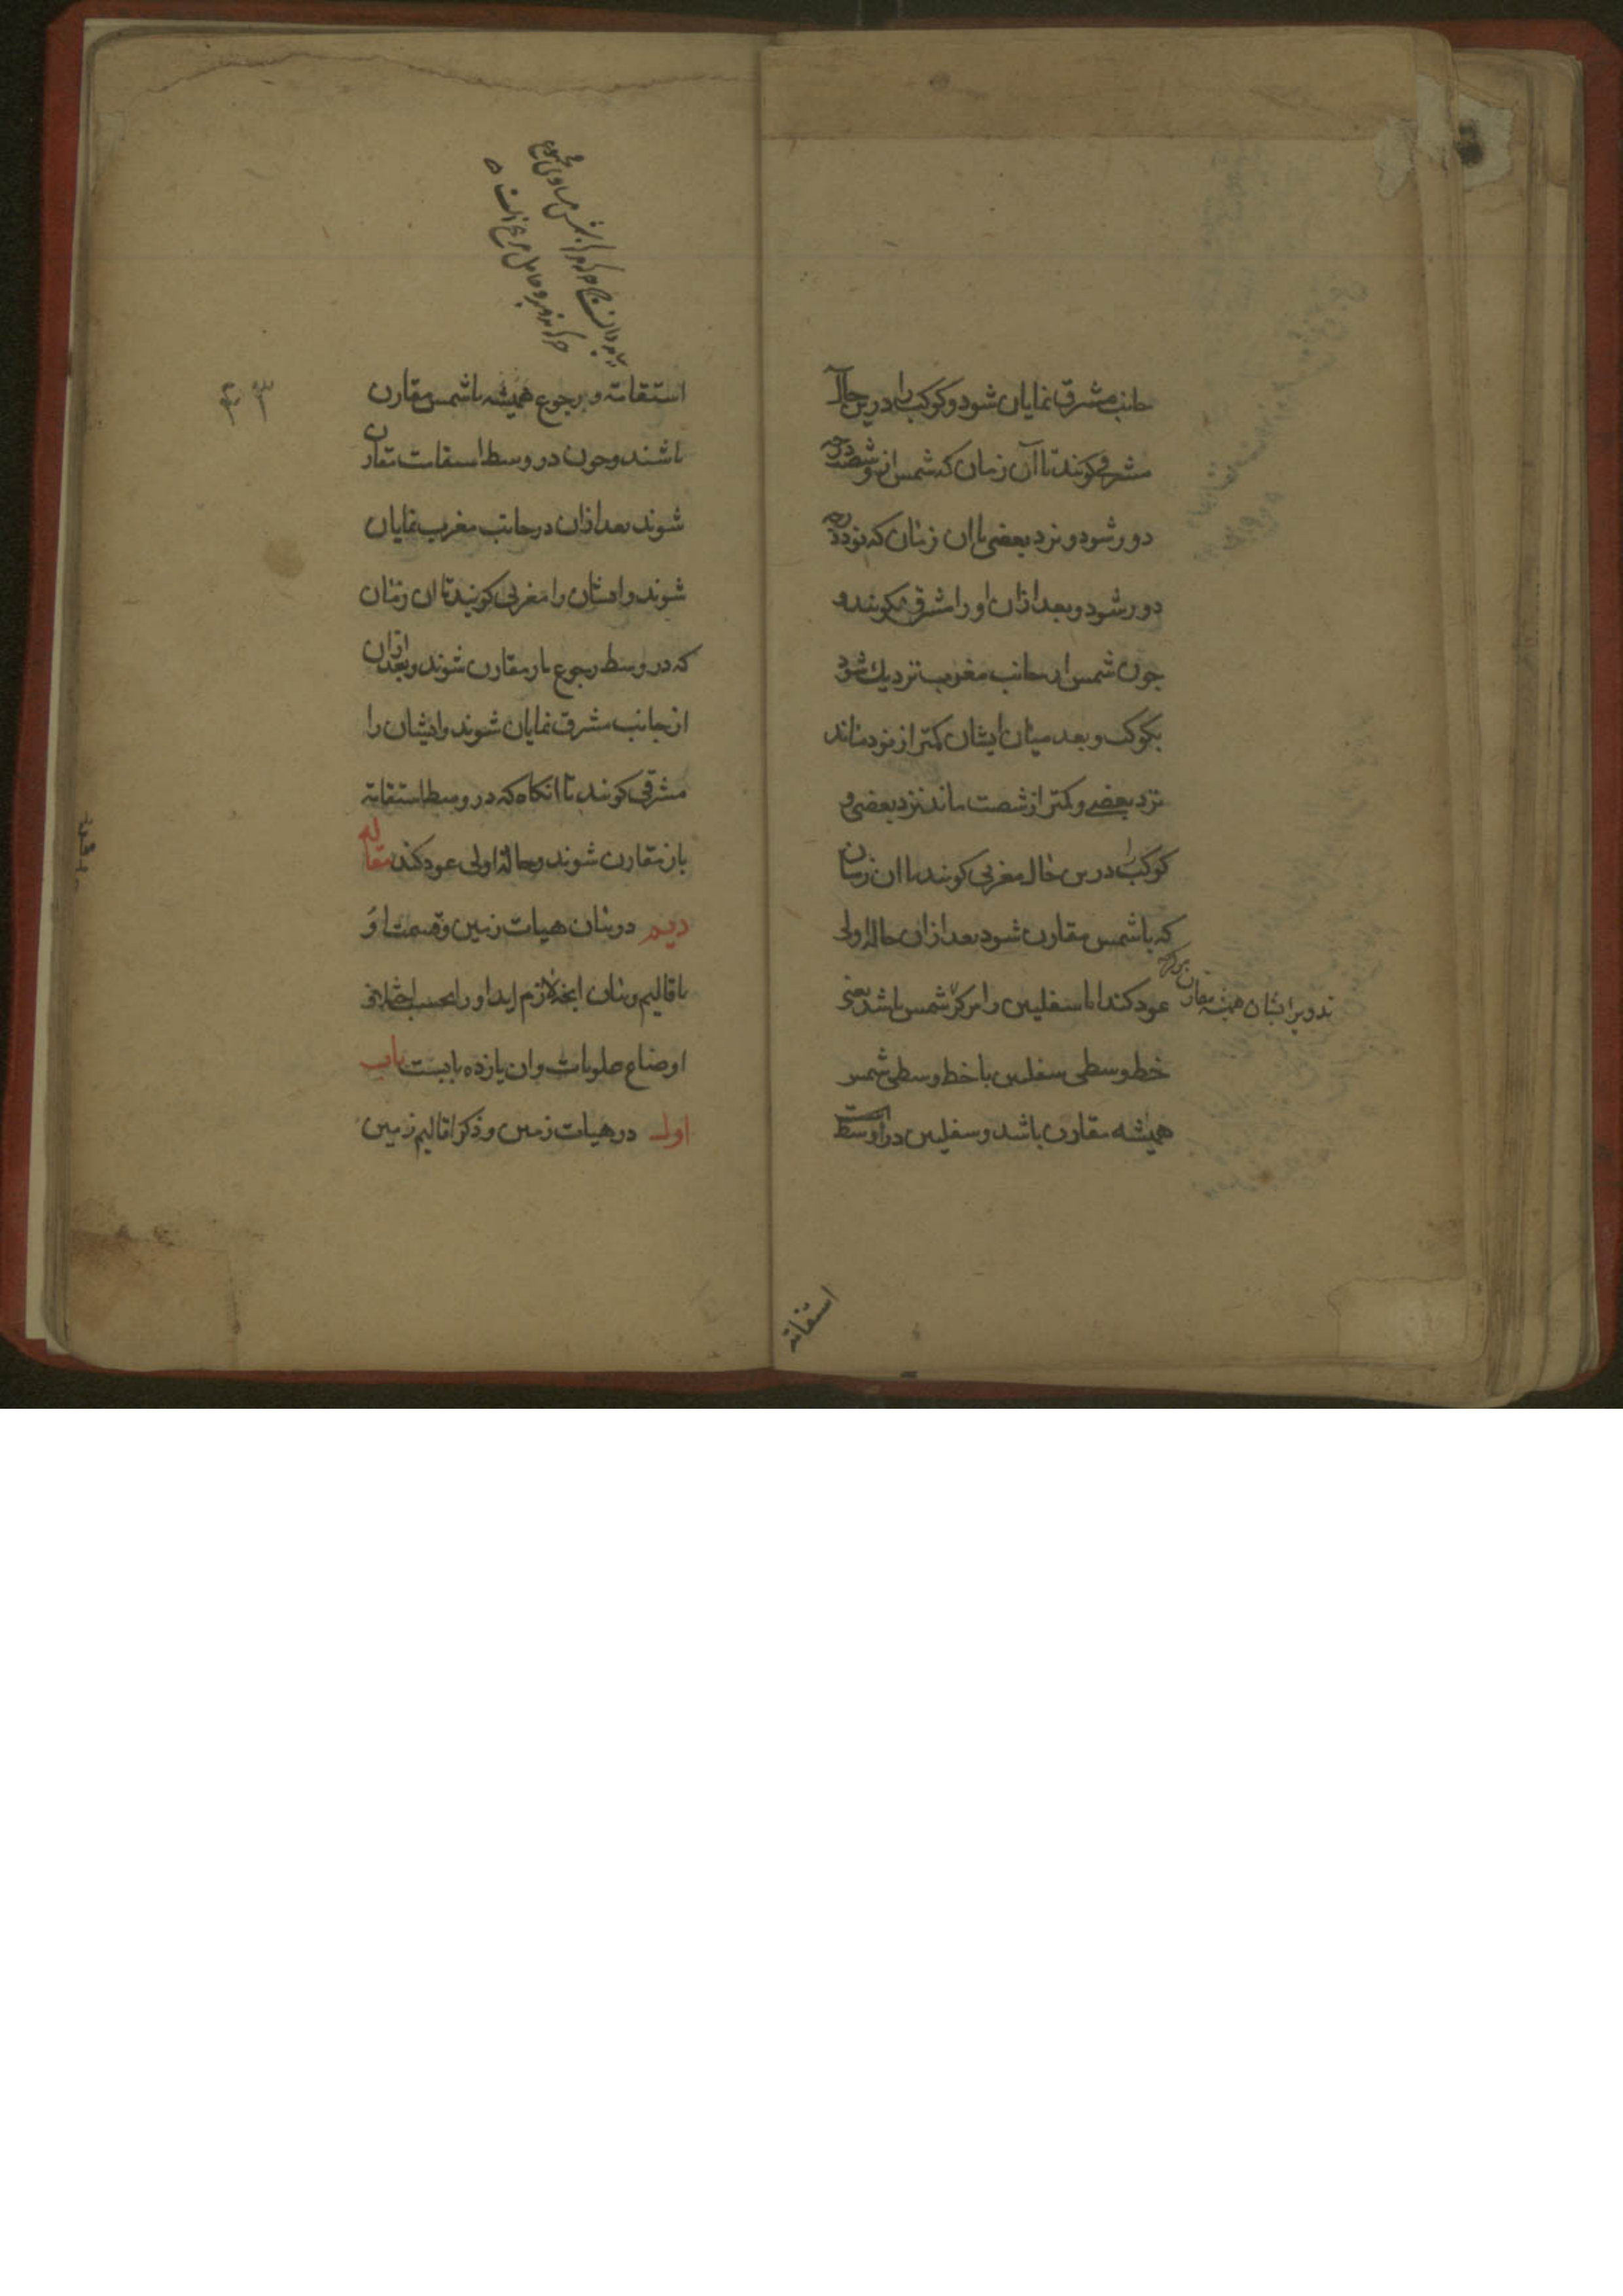 جانب مشرق نمایان شود و کوکب را درین حال
مشرقی کویند تا آن زمان که شمس از و شصت درجه
دور شود و نزد بعضی تا ان زمان که نود درجه
دور شود و بعد ازان او را مشرقی نکویند و
چون شمس از جانب مغرب نزدیك شود
بکوکب و بعد میان ایشان کمتر از نود ماند
نزد بعضی و کمتر از شصت ماند نزد بعضی و
کوکب را درین حال مغربی کویند تا ان زمان
که با شمس مقارن شود بعد ازان حاله اولی
عود کند اما سفلیین را مرکز شمس باشد یعنی
تدویر ایشان همیشه مقارن مرکز
خط وسطی سفلیین با خط وسطی شمس
همیشه مقارن باشد و سفلیین در اواسط
استقامة
استقامة و رجوع همیشه با شمس مقارن
باشند و چون در وسط استقامت مقارن
شوند بعد ازان در جانب مغرب نمایان
شوند و ایشان را مغربی کویند تا ان زمان
که در وسط رجوع باز مقارن شوند و بعد ازان
از جانب مشرق نمایان شوند و ایشان را
مشرقی کویند تا انکاه که در وسط استقامة
باز مقارن شوند و حاله اولی عود کند مقاله
دیم در بیان هیات زمین و قسمت او
باقالیم و بیان انچه لازم اید او را بحسب اختلاف
اوضاع علویات و ان یازده بابست باب
اول در هیات زمین و ذکر اقالیم زمین
۴۳